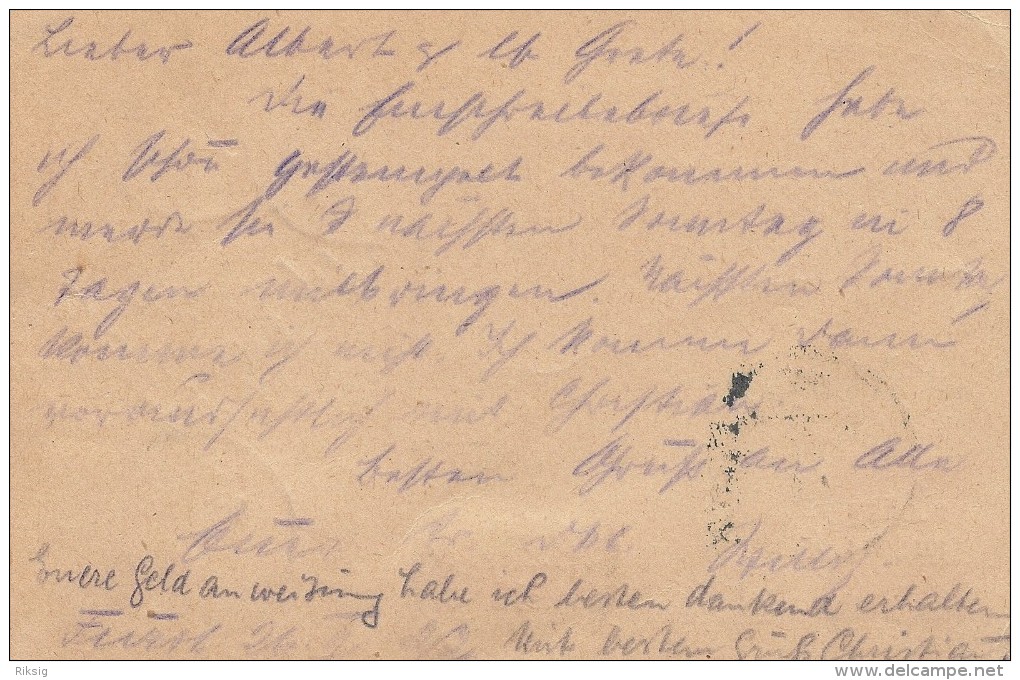 Lieber Albert & lb Grete!
Die Einschreibebriefe habe
ich schön gestempelt bekommen und
werde sie nächsten Sonntag in 8
Tagen mitbringen. Nächsten Sonntag
komme ich nicht. Ich komme dann
voraussichtlich mit Christian.
besten Gruß an Alle
Euere Geldanweisung habe ich besten dankend erhalten
Mit bestem Gruß Christian
Riksig